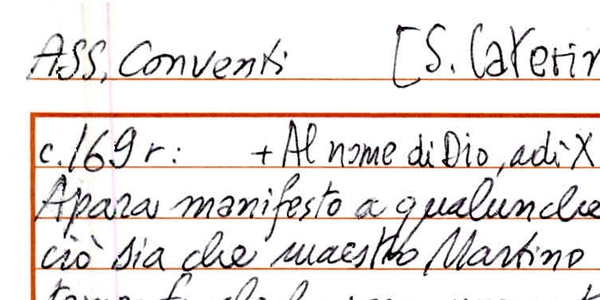 ASS, Conventi [S. Caterin
c. 169 r: + Al nome di Dio, adì X
Apara manifesto a qualunche
ciò sia che maestro Martino